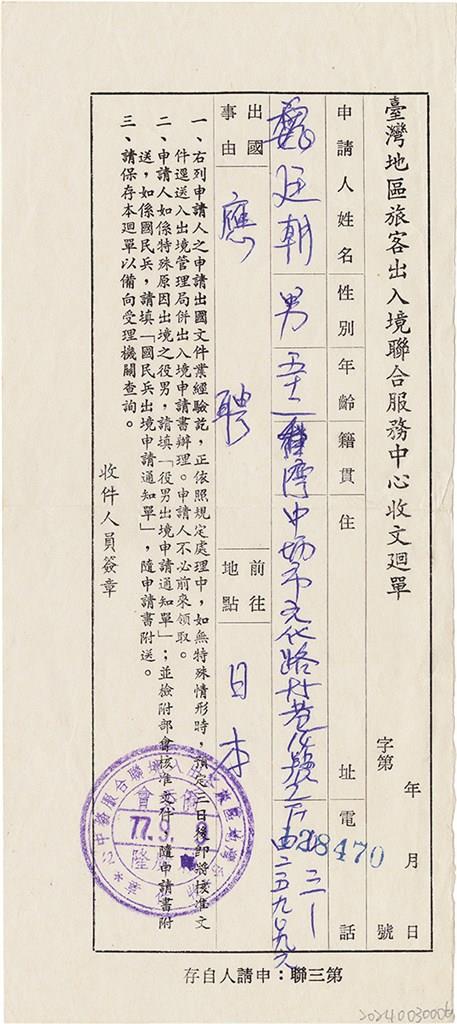 臺灣地區旅客出入境聯合服務中心收文迴單
字第　　號
年　月　日
申請人姓名　性別　年齡　籍貫　住　址　電　話
魏廷朝　男　五十二　臺灣　中坜市元化路
28470
出國事由　應聘　前往地點　日本
一、右列申請人之申請出國文件業經驗訖，正依照規定處理中，如無特殊情形時，預定三日後即將核准文
件逕送入出境管理局併出入境申請書辦理。申請人不必前來領取。
二、申請人如係特殊原因出境之役男，請填「役男出境申請通知單」；並檢附部會核准文件隨申請書附
送，如係國民兵，請填「國民兵出境申請通知單」，隨申請書附送。
三、請保存本迴單以備向受理機關查詢。
收件人員簽章
77.9.
第三聯：申請人自存
20240030006